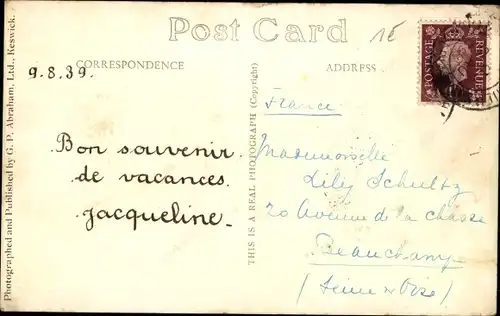 Post Card
1£
CORRESPONDENCE
ADDRESS
POSTAGE
REVENUE
9.8.39.
France
Bon souvenir
de vacances.
Jacqueline_
Mademoiselle
Lily Schultz
20 Avenue de la chasse
Beauchamp
(Seine et Oise)
THIS IS A REAL PHOTOGRAPH (Copyright)
Photographed and Published by G. P. Abraham, Ltd., Keswick.